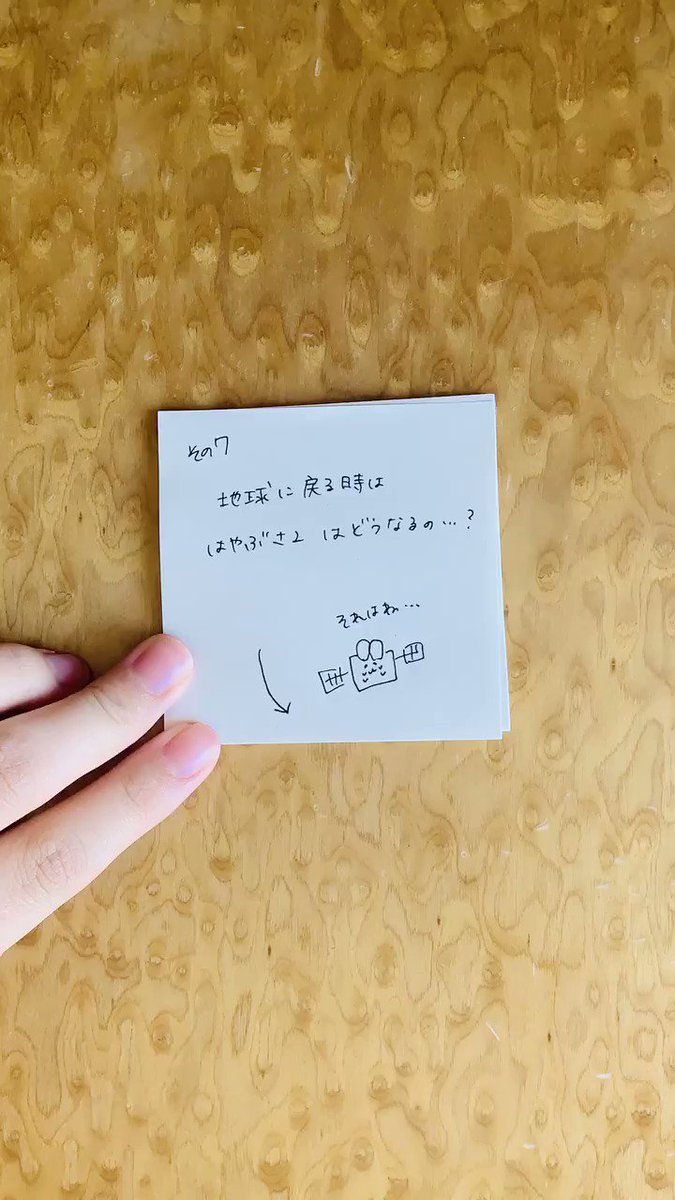 その7
地球に戻る時は
はやぶさ2 はどうなるの…?
それはね…